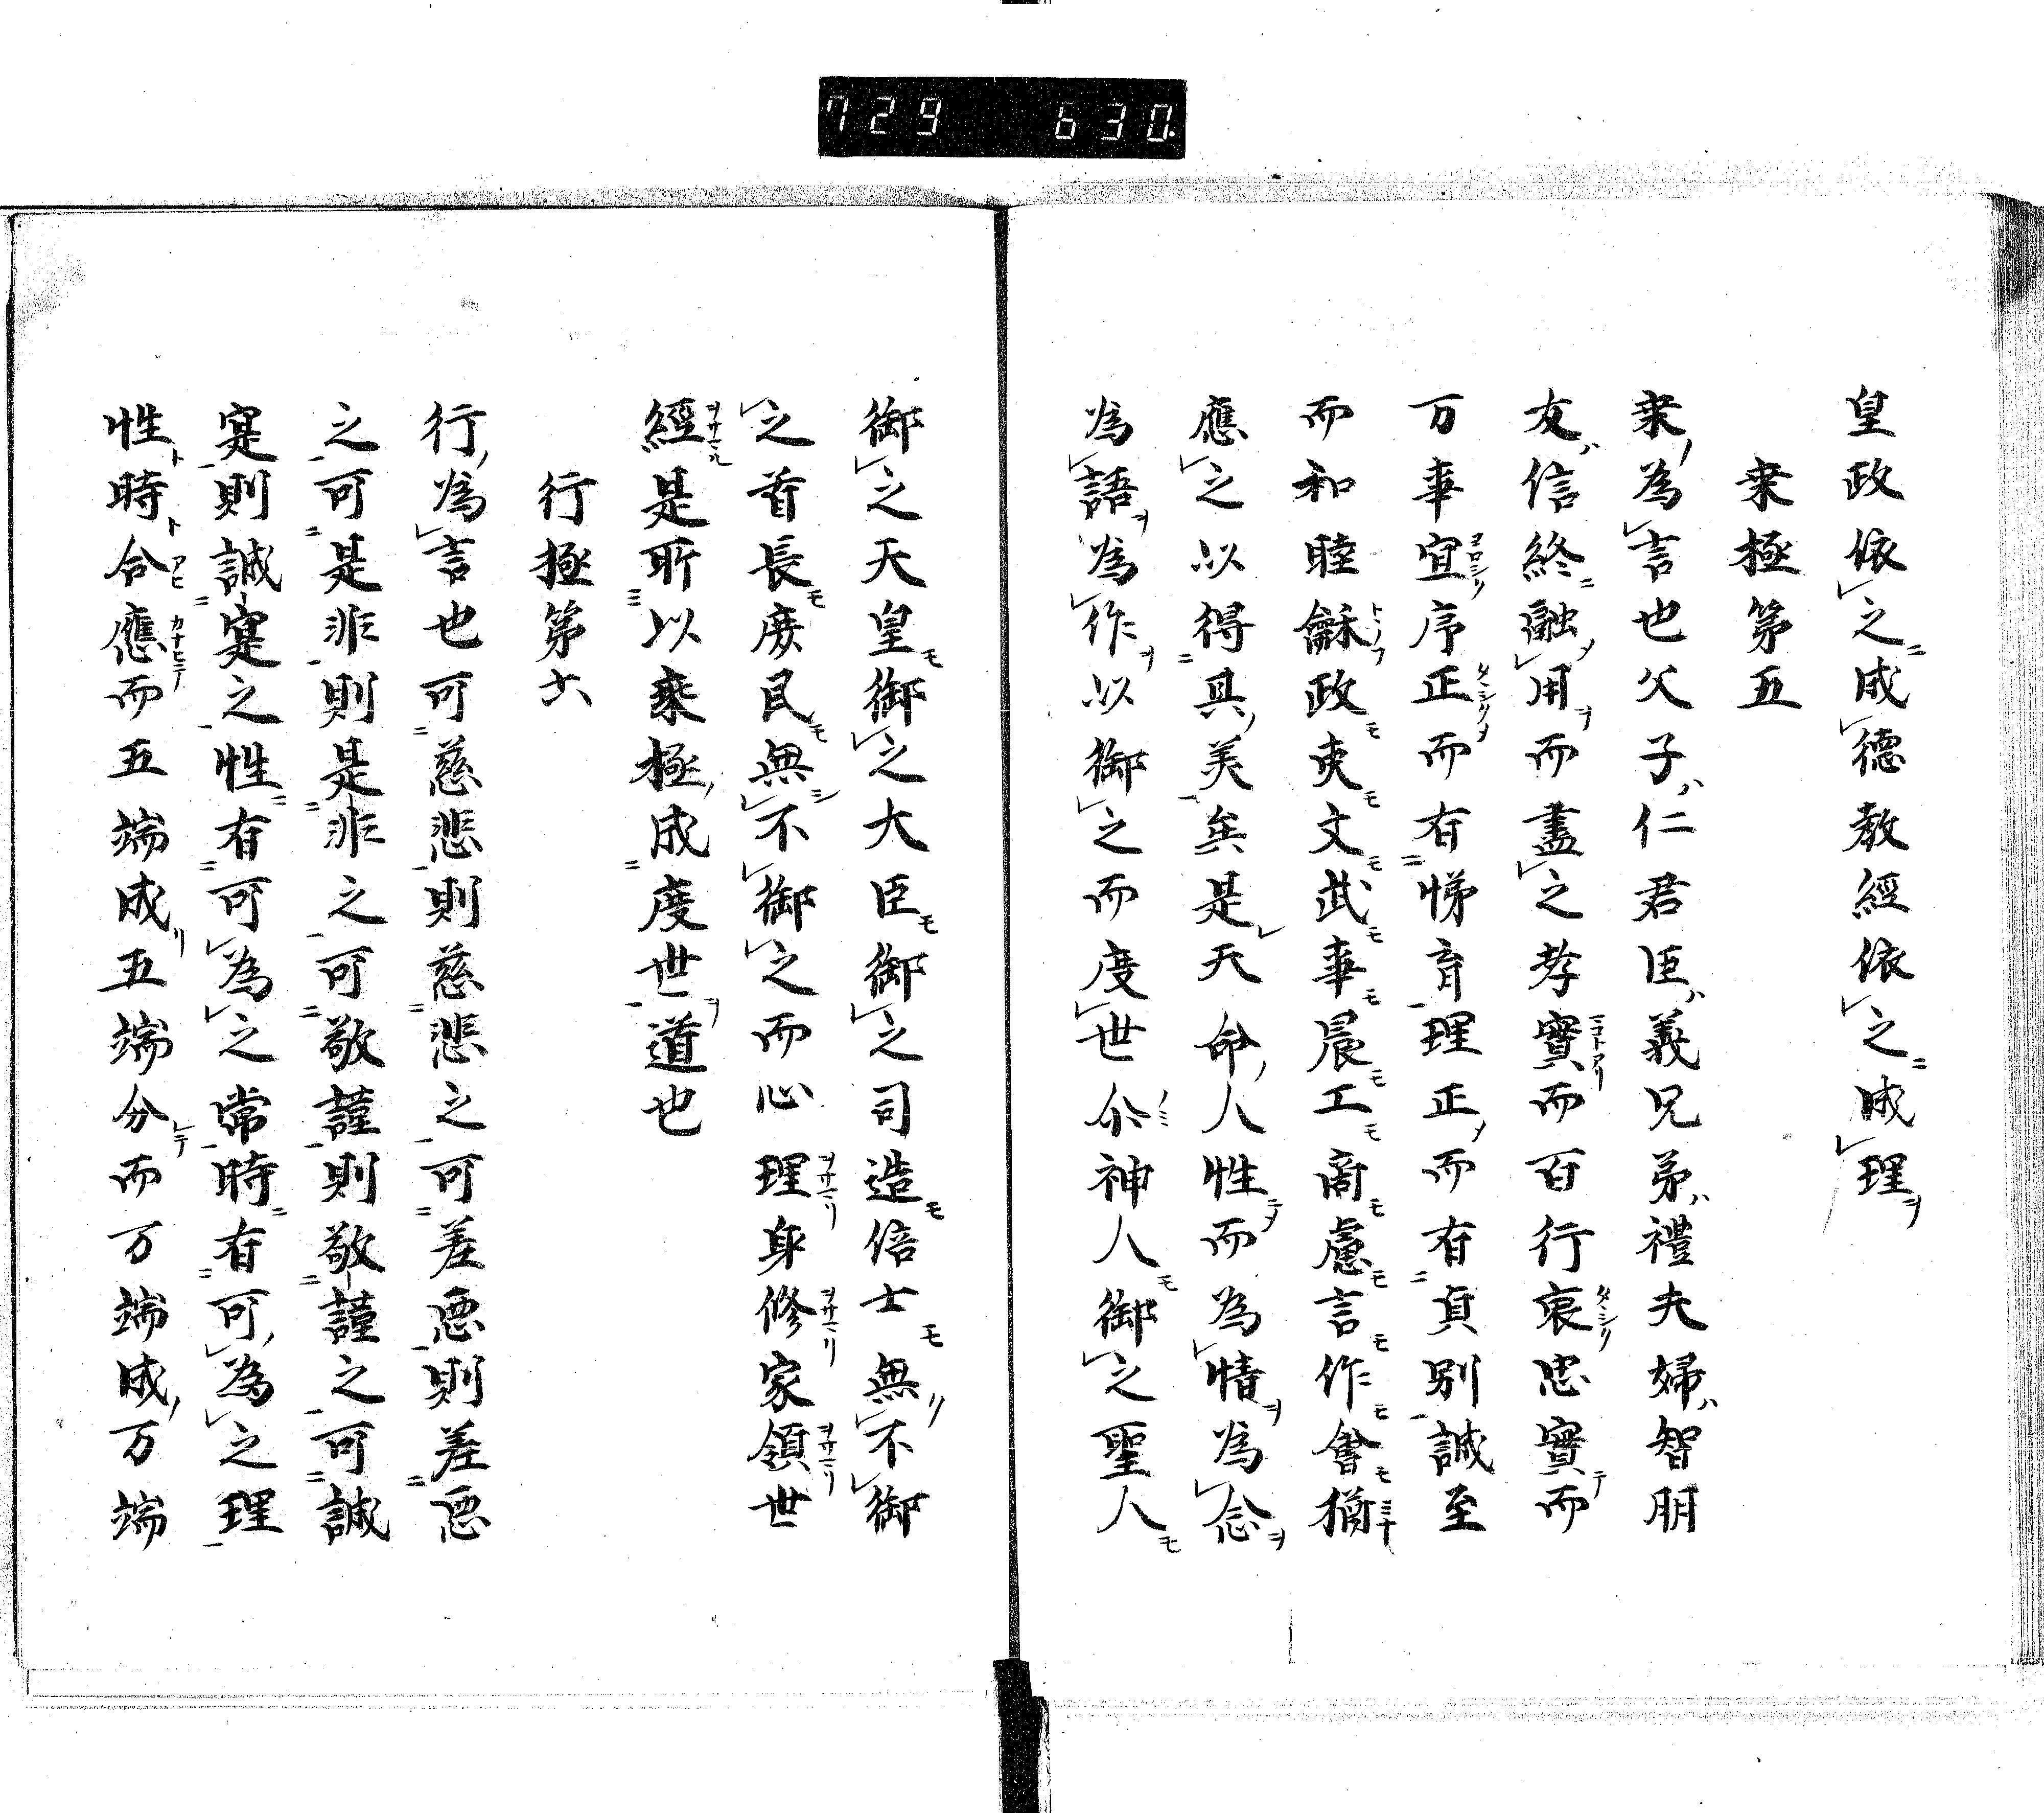 729 630.
皇政依之成德教經依之成理
乗極第五
乗為言也父子仁君臣義兄弟禮夫婦智朋
友信終融用而盡之孝實而百行衷忠實而
万事宜序正而有悌育理正而有貞別誠至
而和睦龢政吏文武事農工商慮言作會猶
應之以得其美矣是天命人性而為情為念
為語為作以御之而度世尒神人御之聖人
御之天皇御之大臣御之司造倍士無不御
之首長庶民無不御之而心理身修家領世
經是所以乗極成度世道也
行極第六
行為言也可慈悲則慈悲之可差惡則差惡
之可是非則是非之可敬謹則敬謹之可誠
寔則誠寔之性有可為之常時有可為之理
性時合應而五端成五端分而万端成万端